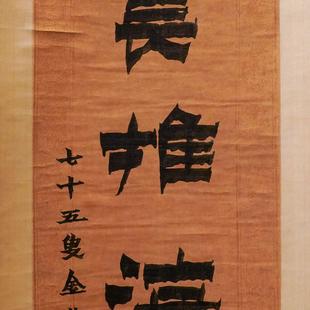 長推
七十五叟金